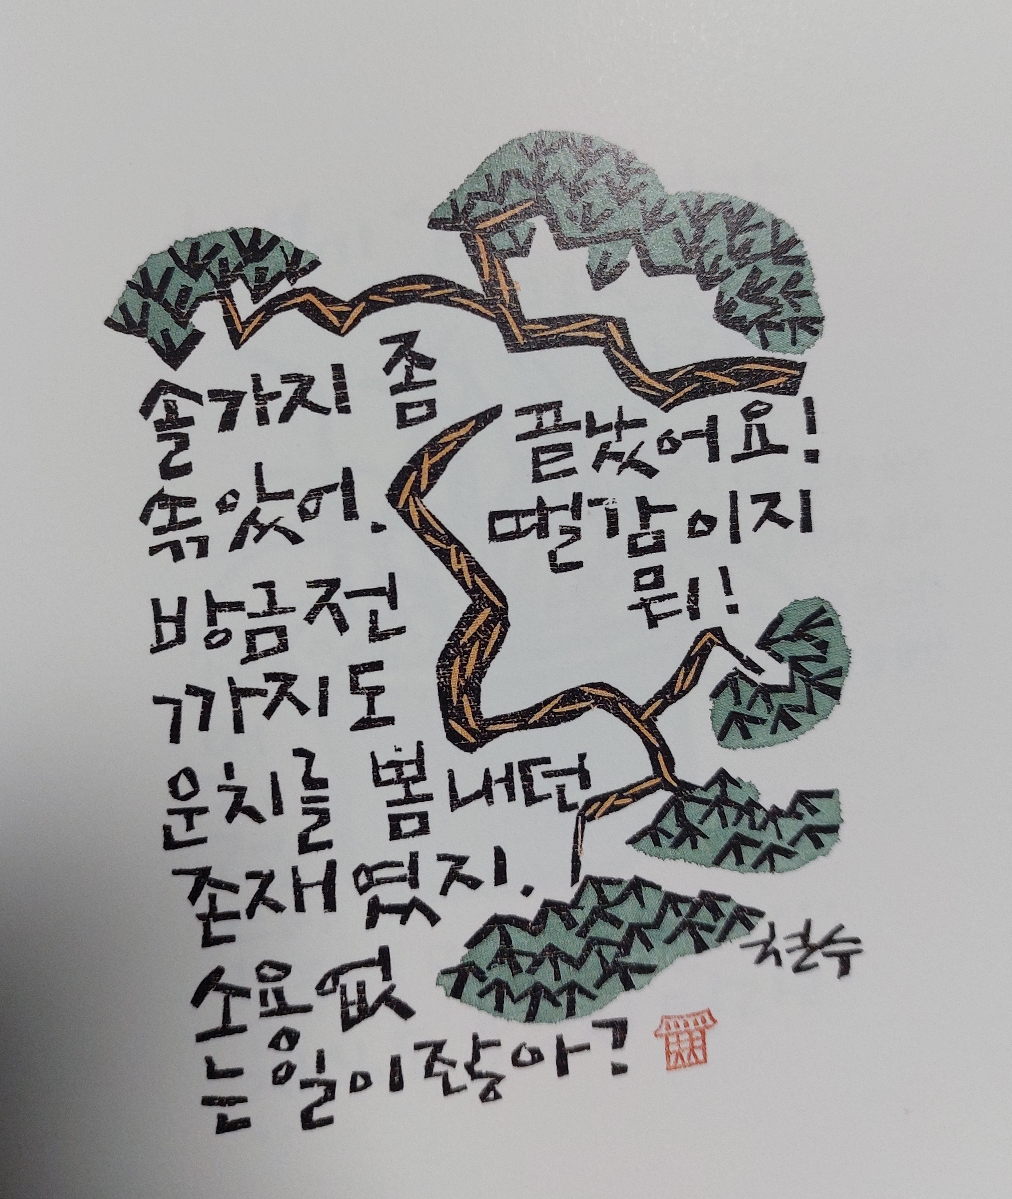 솔가지 좀
솎았어.
방금전
까지도
운치를 봄내던
존재였지.
소용없
는일이잖아?
끝났어요!
땔감이지
뭐!
철수